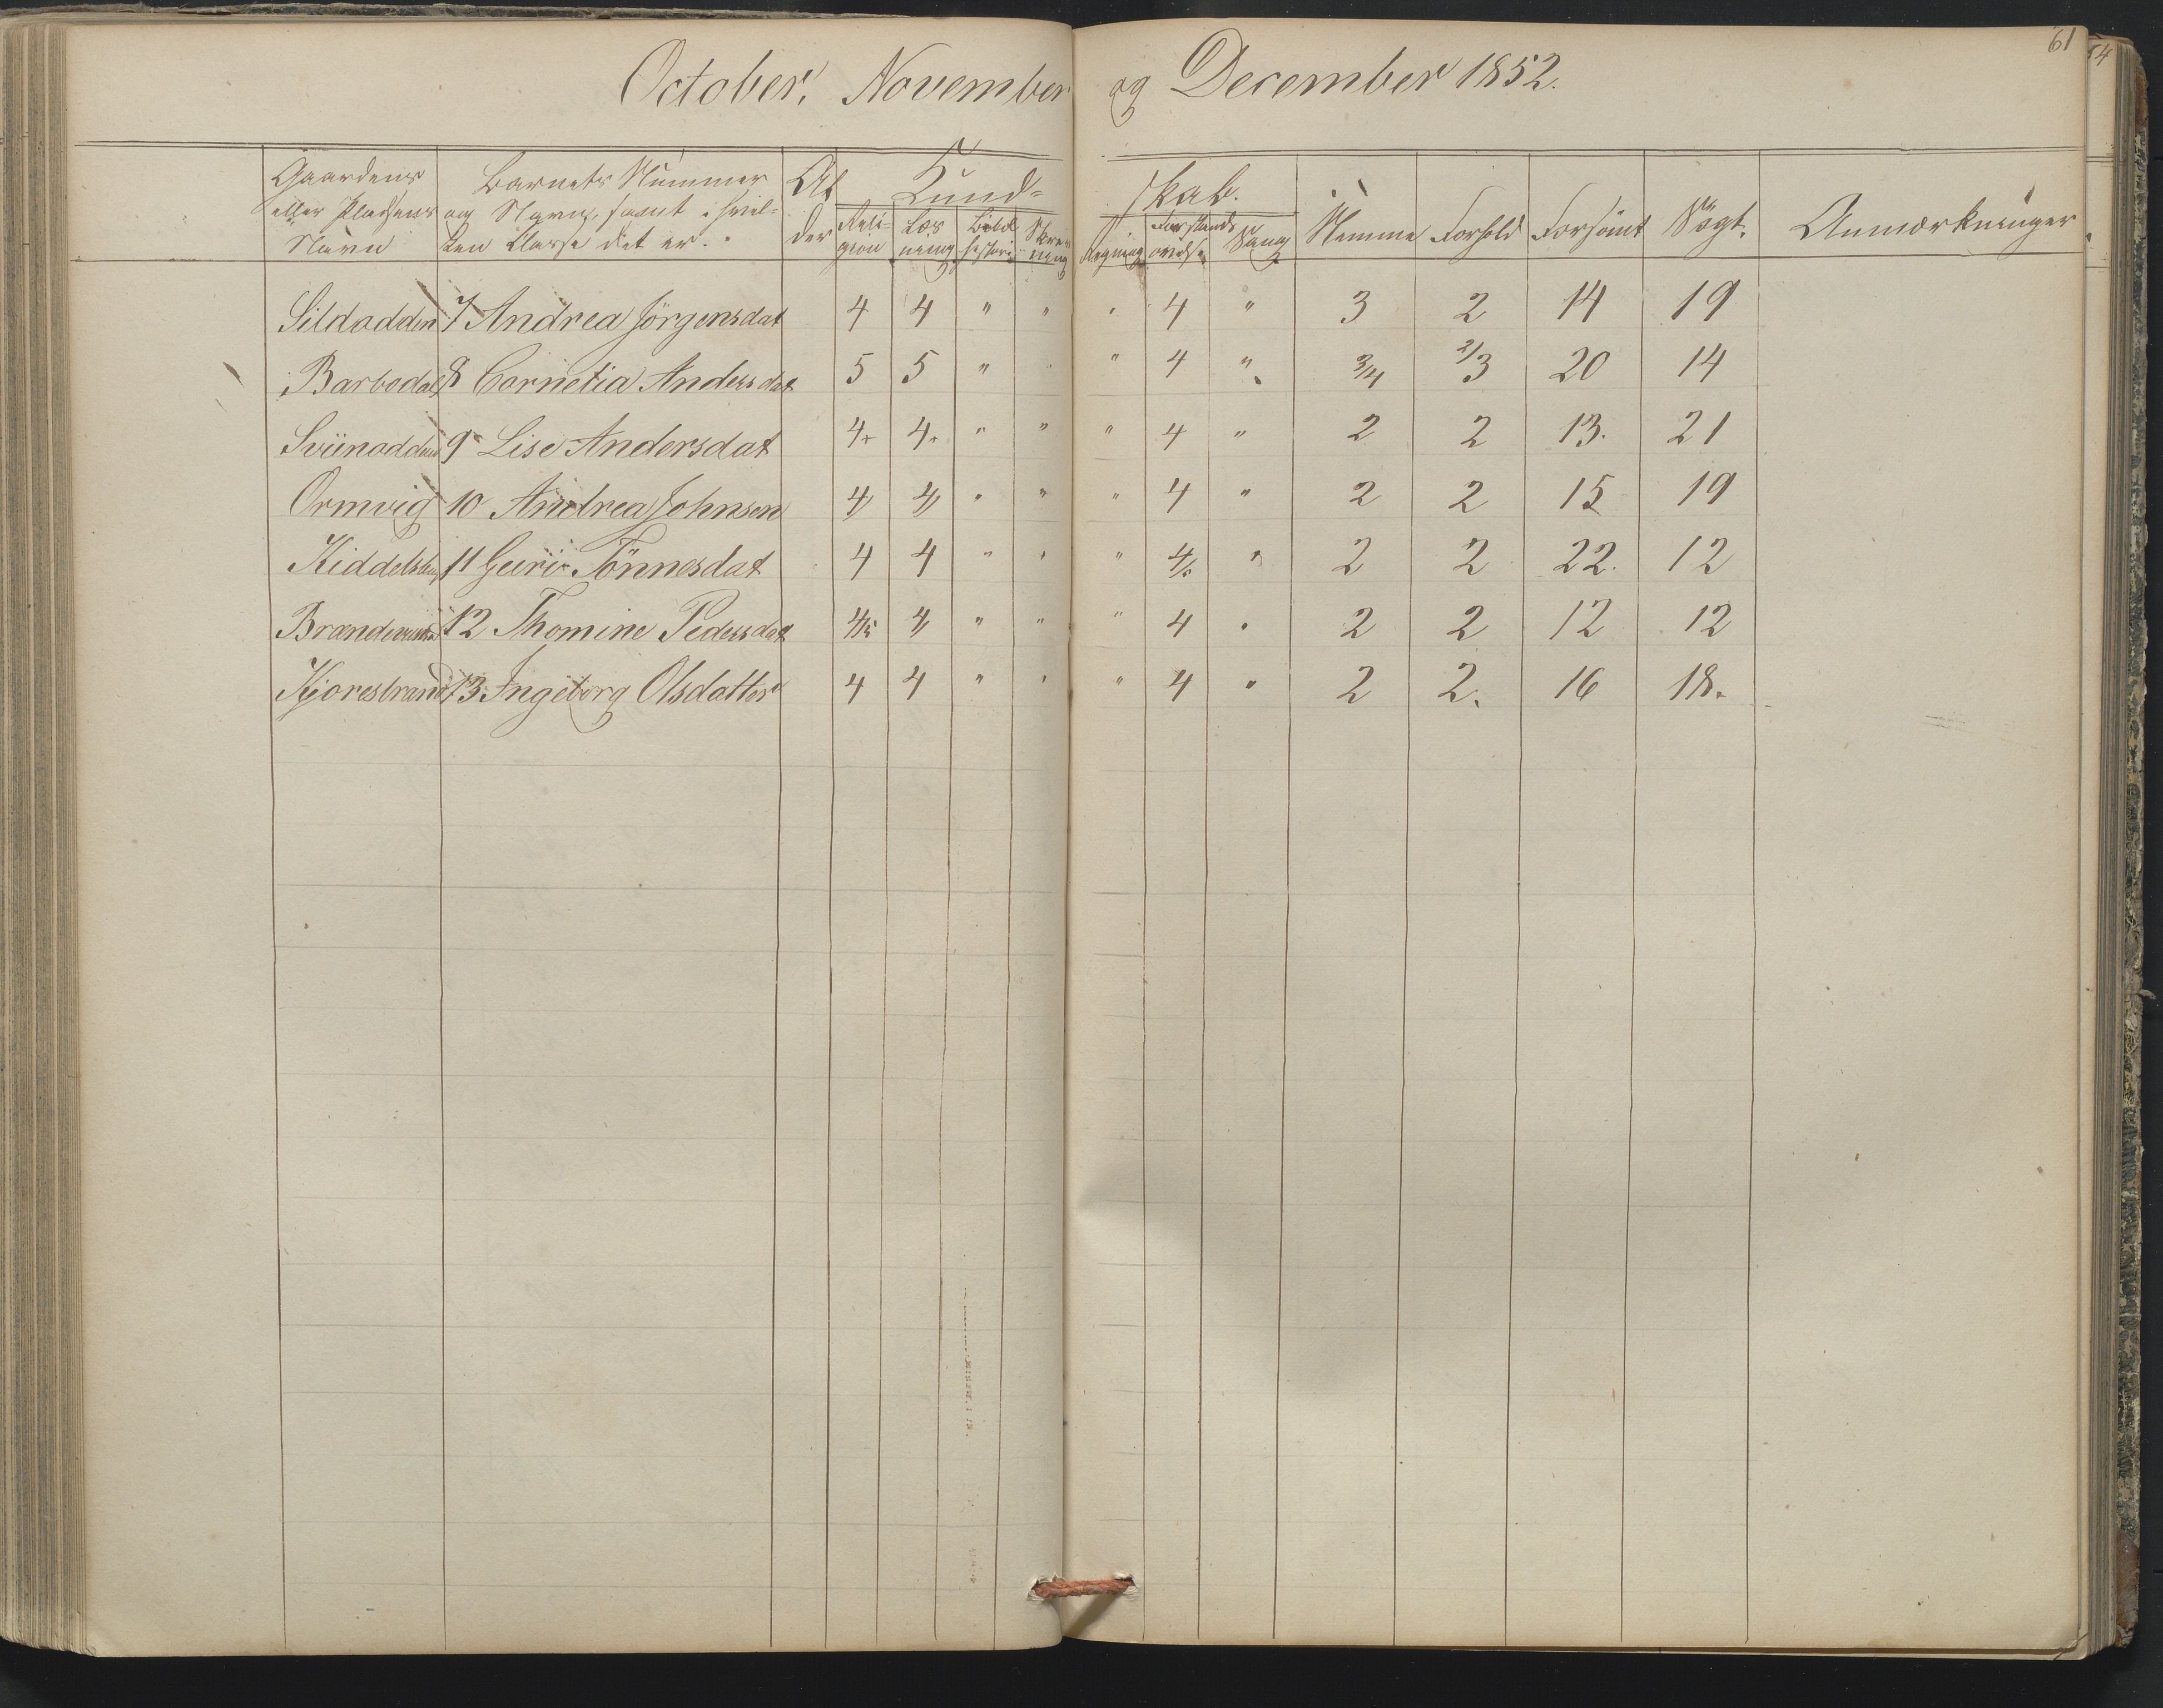 61
October, November og December 1852.
Gaardens eller Pladsens Navn | Barnets Nummer og Navn, samt i hvilken Classe det er. | Alder | Kundskab. | Nemme | Forhold | Forsömt | Sögt. | Anmærkninger
Religion | Læsning | Bibelhistorie | Skrivning | Regning | Forstandsøvelse | Sang
Sildodden 7 Andrea Jörgensdat 4 4 " " " 4 " 3 2 14 19
Barbodal 8 Cornelia Andersdat 5 5 " " " 4 " 3/4 2/3 20 14
Sviinodden 9 Lise Andersdat 4+ 4+ " " " 4 " 2 2 13. 21
Ormvig 10 Andrea Johnsen 4 4 " " " 4 " 2 2 15 19
11 Guri Tönnesdat 4 4 " " " 4 " 2 2 22. 12
12 Thomine Pedersdat 4/5 4 " " " 4 " 2 2 12 12
Kjorestrand 13. Ingeborg Olsdatter 4 4 " " " 4 " 2 2. 16 18.